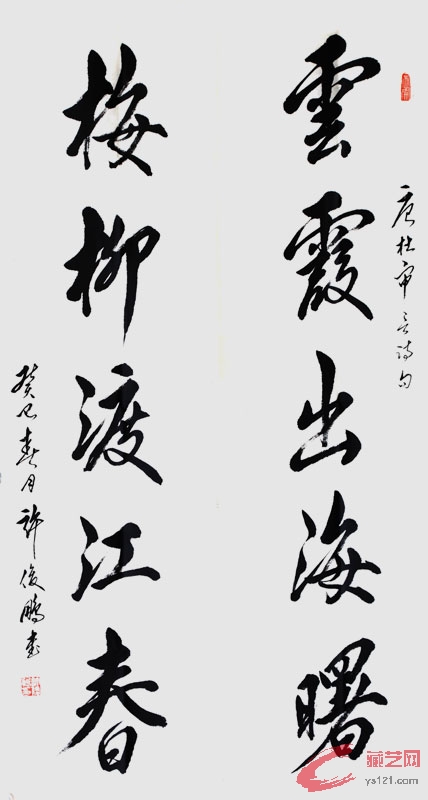 唐杜审言诗句
雲霞出海曙
梅柳渡江春
癸巳春月许俊鹏书
藏艺网
ys121.com